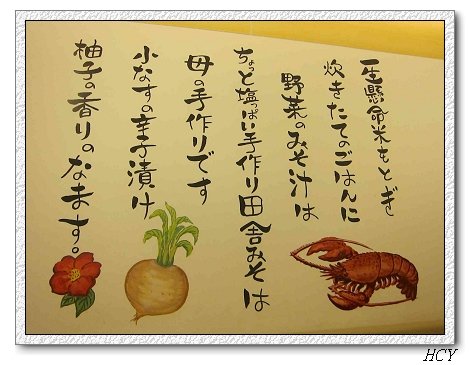 一生懸命米をとぎ
炊きたてのごはんに
野菜のみそ汁は
ちょっと塩っぱい手作り田舎みそは
母の手作りです
小なすの辛子漬け
柚子の香りのなます。
HCY